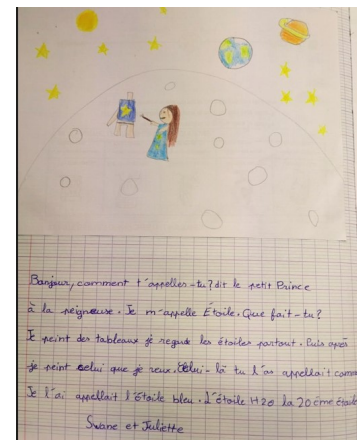 Bonjour, comment t'appelles-tu? dit le petit Prince
à la peigneuse. Je m'appelle Étoile. Que fait-tu?
Je peint des tableaux je regade les étoiles partout. Puis après
je peint celui que je veux. Celui-là tu l'as appellait comm
Je l'ai appellait l'étoile bleu. L'étoile H20 la 20ème étoile
Swane et Juliette